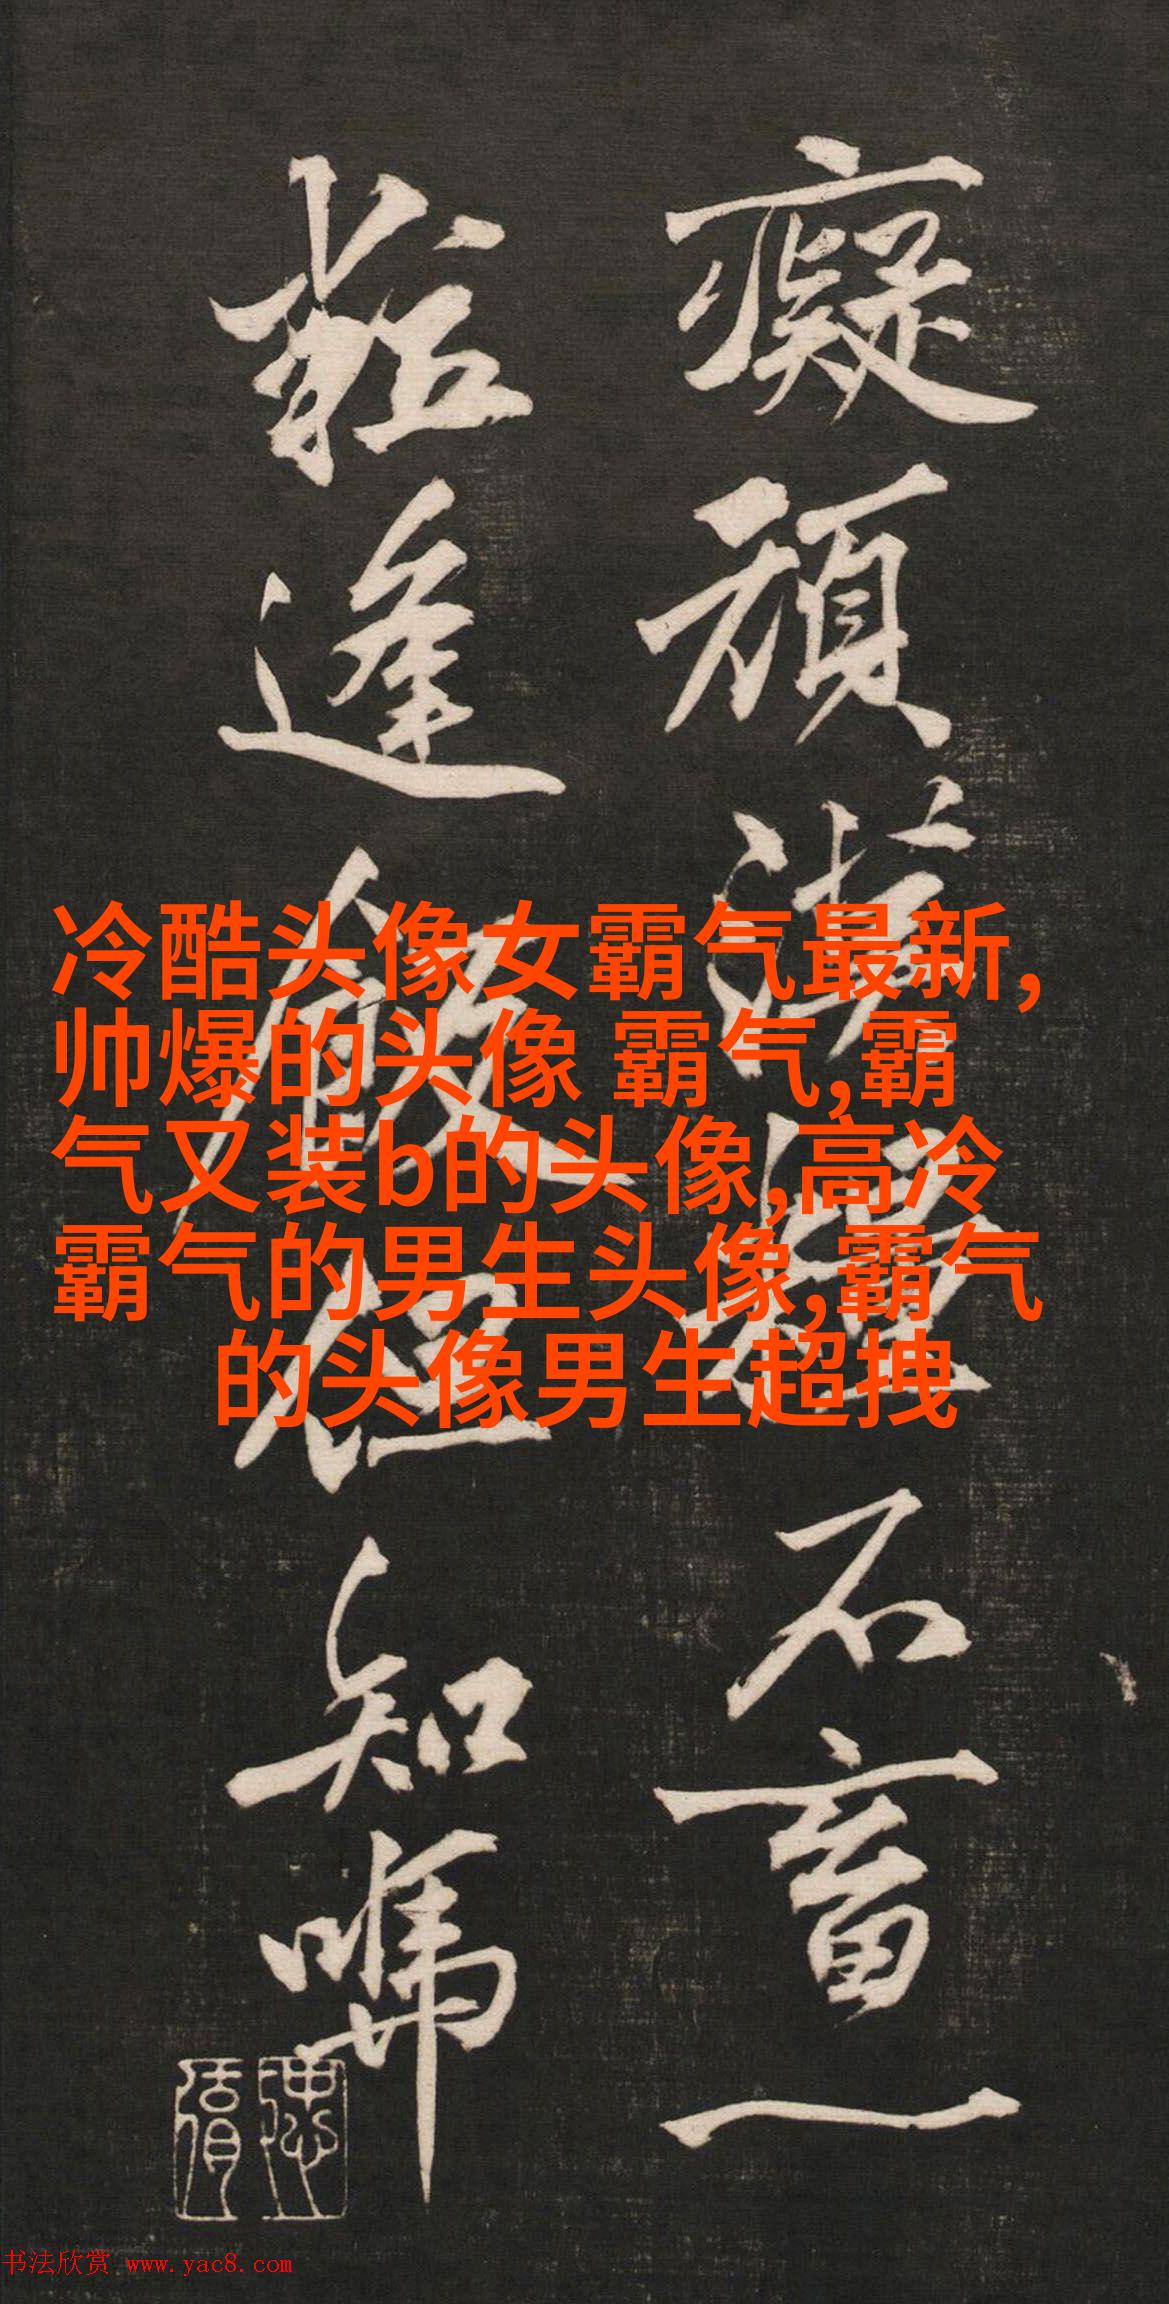 癡頑漢石畜一
逢飯但知
冷酷头像女霸气最新,
帅爆的头像 霸气,霸
气又装b的头像,高冷
霸气的男生头像,霸气
的头像男生超拽
书法欣赏 www.yac8.com